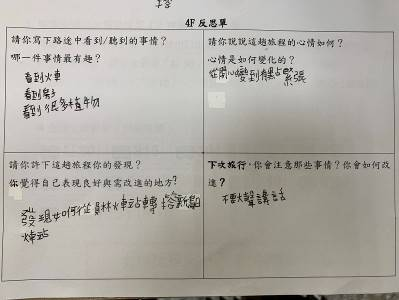 4F 反思單
請你寫下路途中看到/聽到的事情?
哪一件事情最有趣?
看到火車
看到
看到很多植物
請你說說這趟旅程的心情如何?
心情是如何變化的?
從開心變到有點緊張
請你許下這趟旅程你的發現?
你覺得自己表現良好與需改進的地方?
發現如何從員林火車站轉搭新
火車站
下次旅行,你會注意那些事情?你會如何改
進?
不要大聲講話